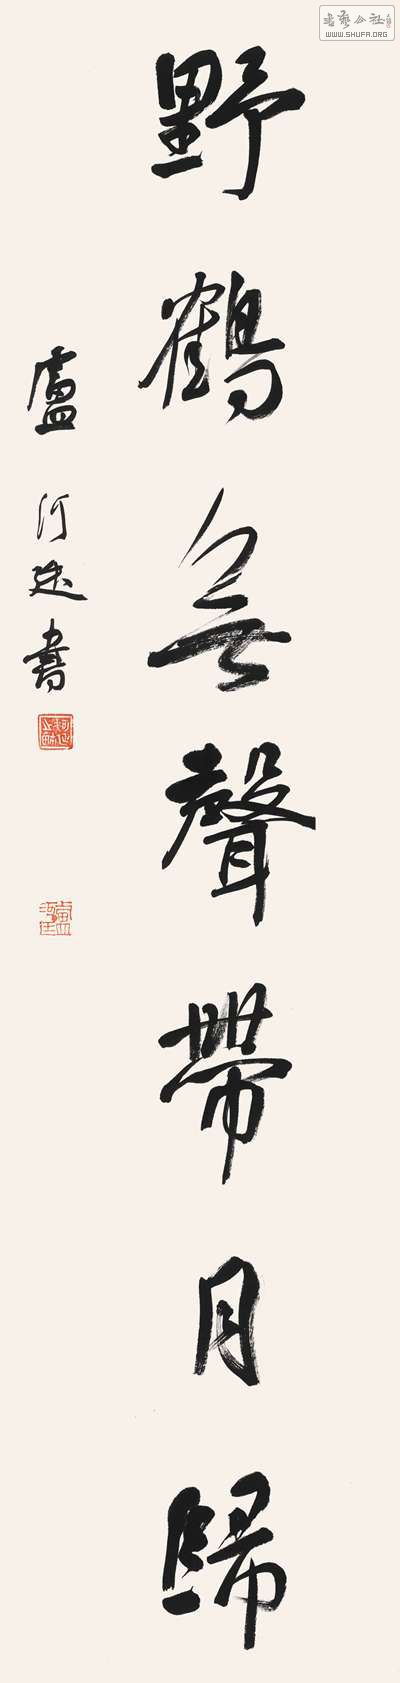 野鶴無聲帶月歸
盧汀廷書
書藝公社
WWW.SHUFA.ORG